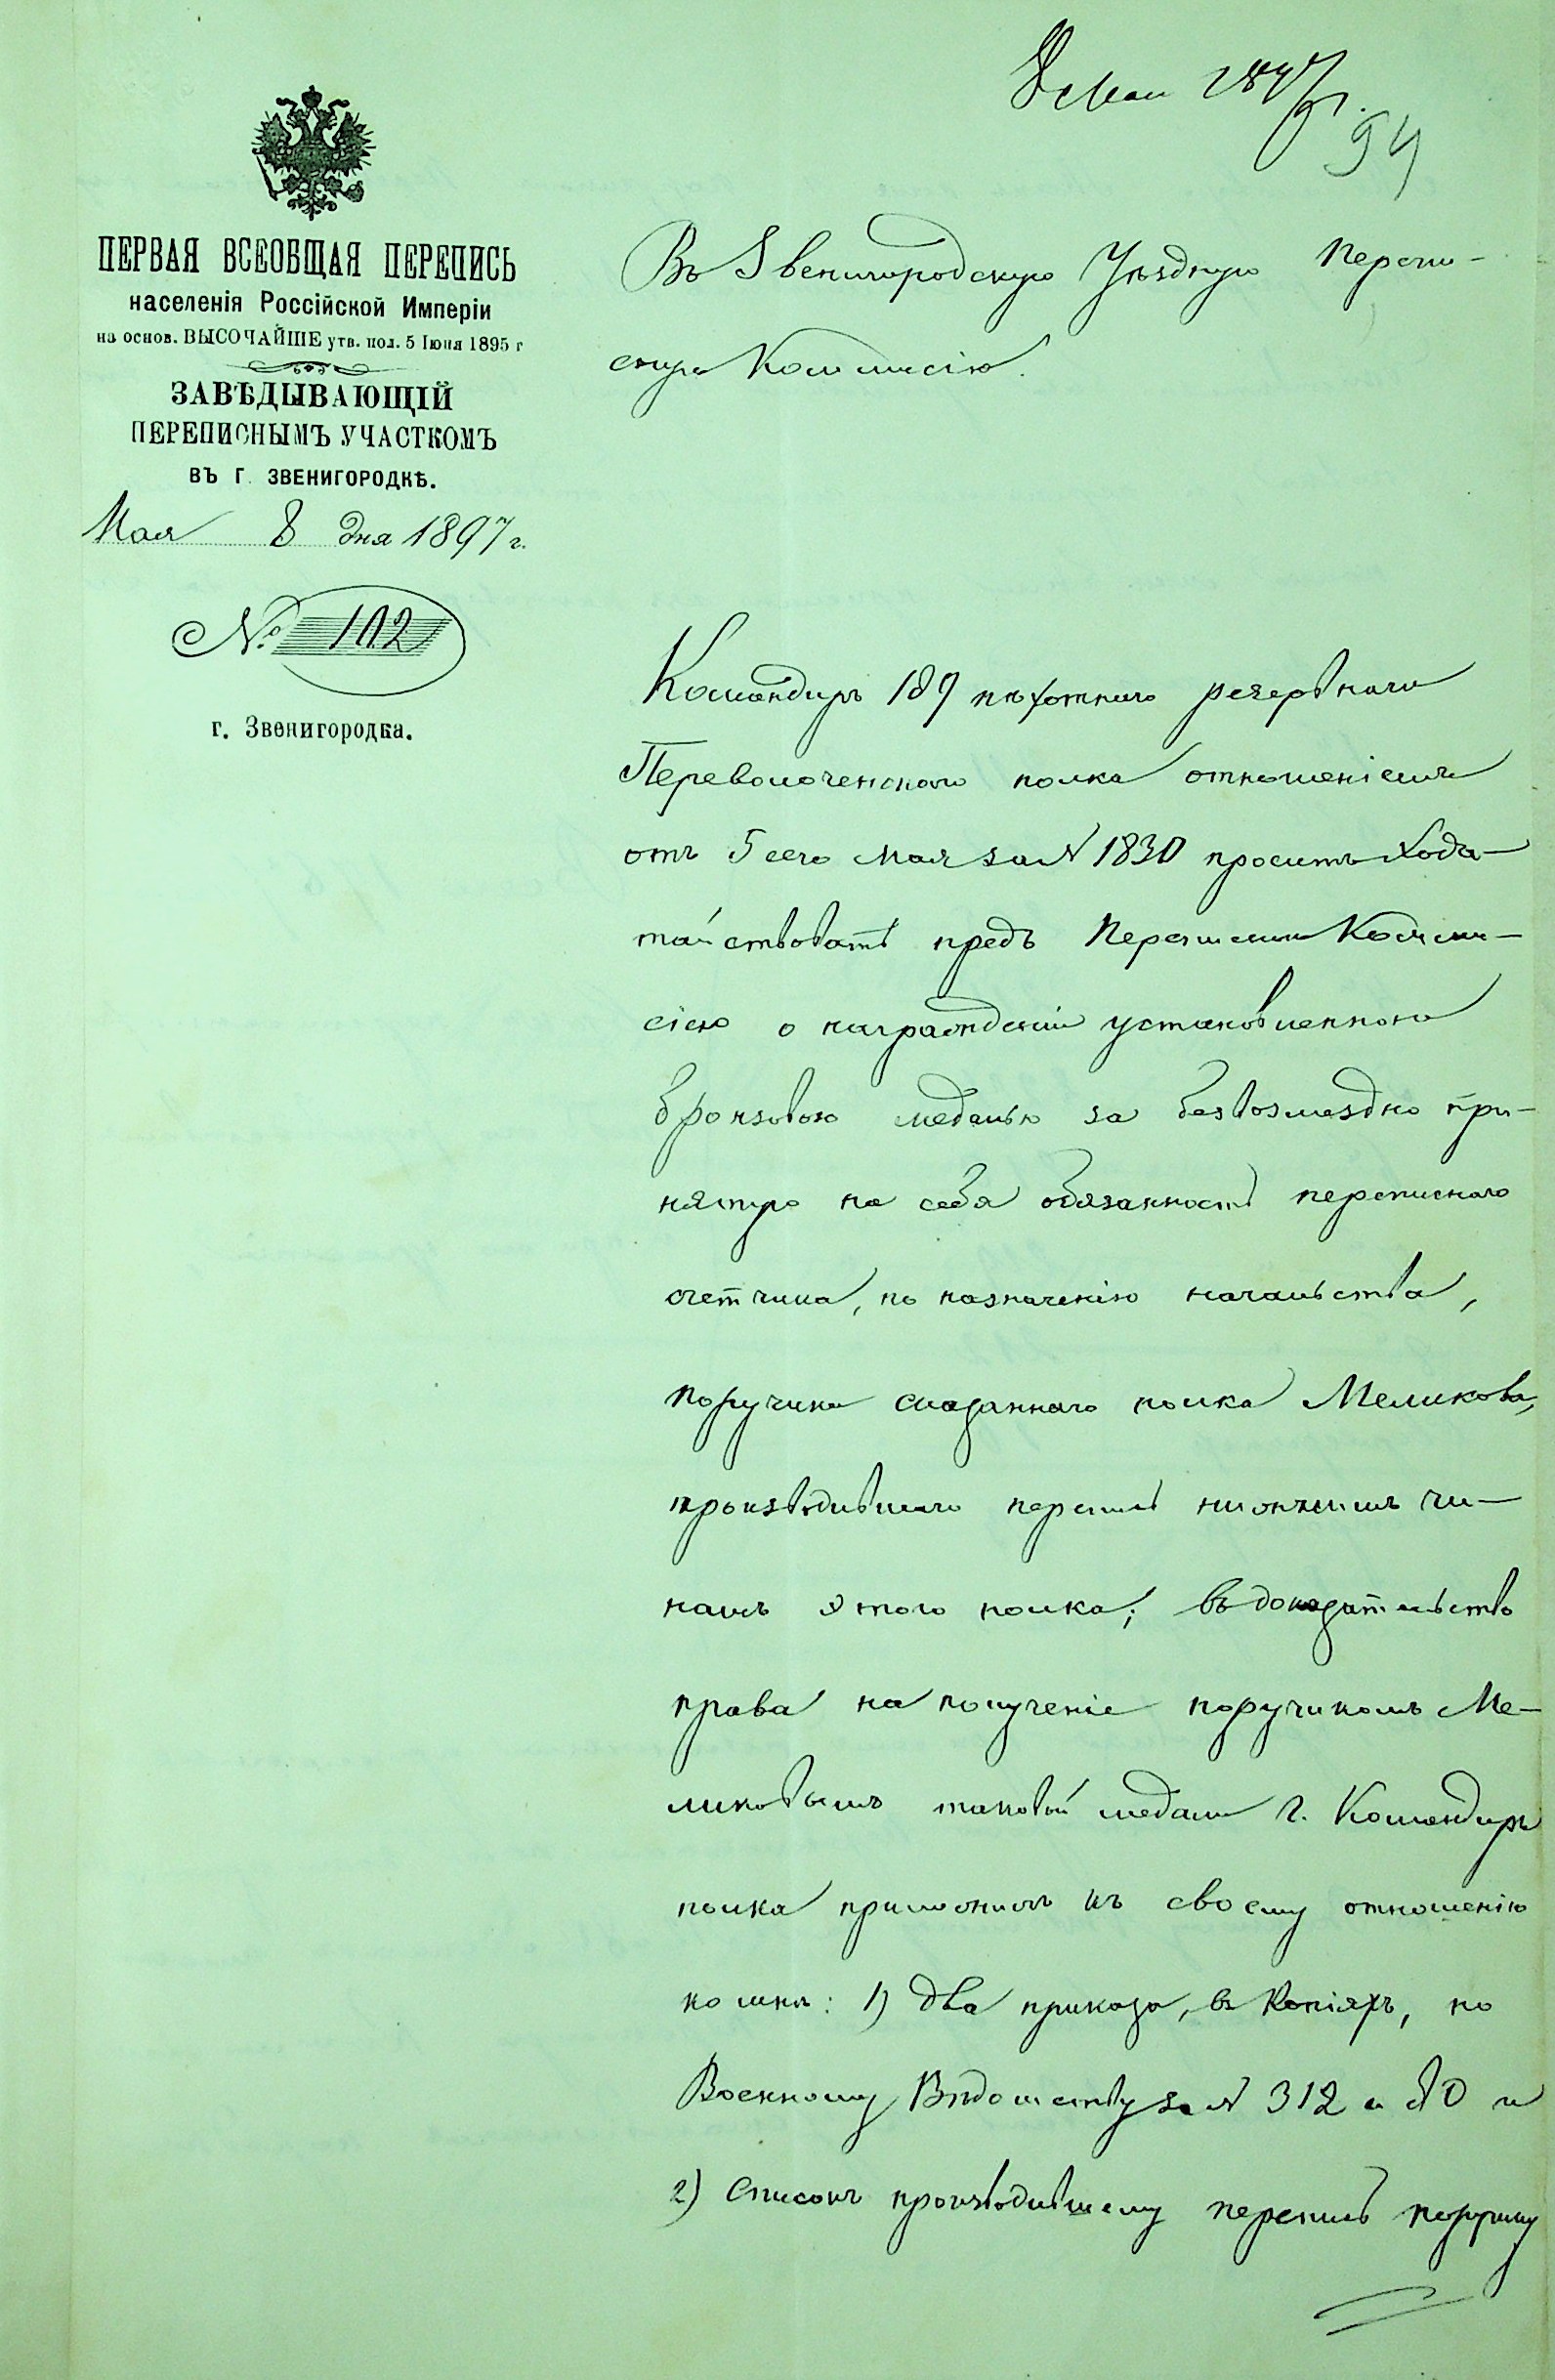 8 Мая 1897 г.
94
ПЕРВАЯ ВСЕОБЩАЯ ПЕРЕПИСЬ
населенія Россійской Имперіи
на основ. ВЫСОЧАЙШЕ утв. пол. 5 Іюня 1895 г
ЗАВѢДЫВАЮЩІЙ
ПЕРЕПИСНЫМЪ УЧАСТКОМЪ
ВЪ Г. ЗВЕНИГОРОДКѢ.
Мая 8 дня 1897 г.
№ 102
г. Звенигородка.
Въ Звенигородскую Уѣздную Перепи-
сную Коммисію.
Командиръ 189 пѣхотнаго резервнаго
Переволоченского полка отношеніемъ
отъ 5 сего мая за № 1830 проситъ хода-
тайствовать предъ Переписною Комми-
сіею о награжденіи установленною
бронзовою медалью за безвозмездно при-
нятую на себя обязанность переписнаго
счетчика, по назначенію начальства,
поручика сказаннаго полка Меликова,
производившаго перепись нижнимъ чи-
намъ этого полка; въ доказательство
права на полученіе поручикомъ Ме-
ликовымъ таковой медали г. Командиръ
полка приложилъ къ своему отношенію
ко мнѣ: 1) два приказа, въ копіяхъ, по
Военному Вѣдомству за № 312 и
2) списокъ производившему перепись поручику